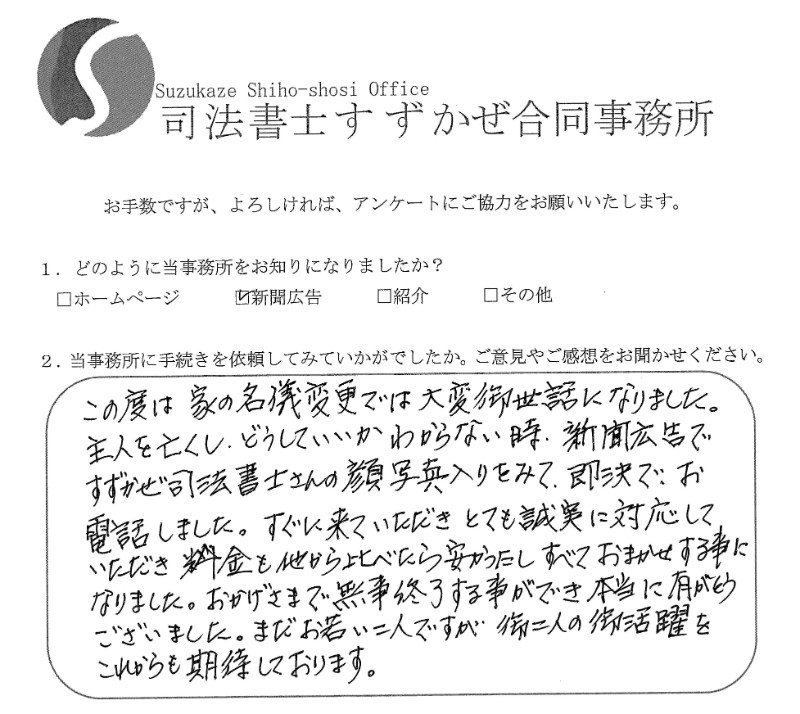 Suzukaze Shiho-shosi Office
司法書士すずかぜ合同事務所
お手数ですが、よろしければ、アンケートにご協力をお願いいたします。
1．どのように当事務所をお知りになりましたか？
□ホームページ ☑新聞広告 □紹介 □その他
2．当事務所に手続きを依頼してみていかがでしたか。ご意見やご感想をお聞かせください。
この度は 家の名儀変更では大変御世話になりました。
主人を亡くし、どうしていいか わからない時、新聞広告で
すずかぜ司法書士さんの顔写真入りをみて、即決で、お
電話しました。すぐに来ていただき とても誠実に対応して
いただき 料金も他から比べたら安かったし すべて おまかせする事に
なりました。おかげさまで無事終了する事ができ 本当に有がとう
ございました。まだお若い二人ですが 御二人の御活躍を
これからも期待しております。